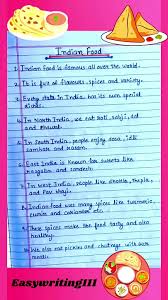 Indian Food
1) Indian Food is famous all over the world.
2. It is full of flavours, spices and variety.
3. Every state in India has its own special
dish.
4. In North India, we eat roti, sabji, dal
and
5. In South India, people enjoy dosa, idli
sambhar and
6. East India is known for sweets like
rasgulla and sandesh.
7. In West India, people like dhokla, thepla,
and Pav bhaji.
8. Indian food uses many spices like turmeric,
cumin and coriander etc.
9. These spices make the food tasty and also
healthy.
10. We also eat pickles and chutneys with our
meals.
Easywriting111